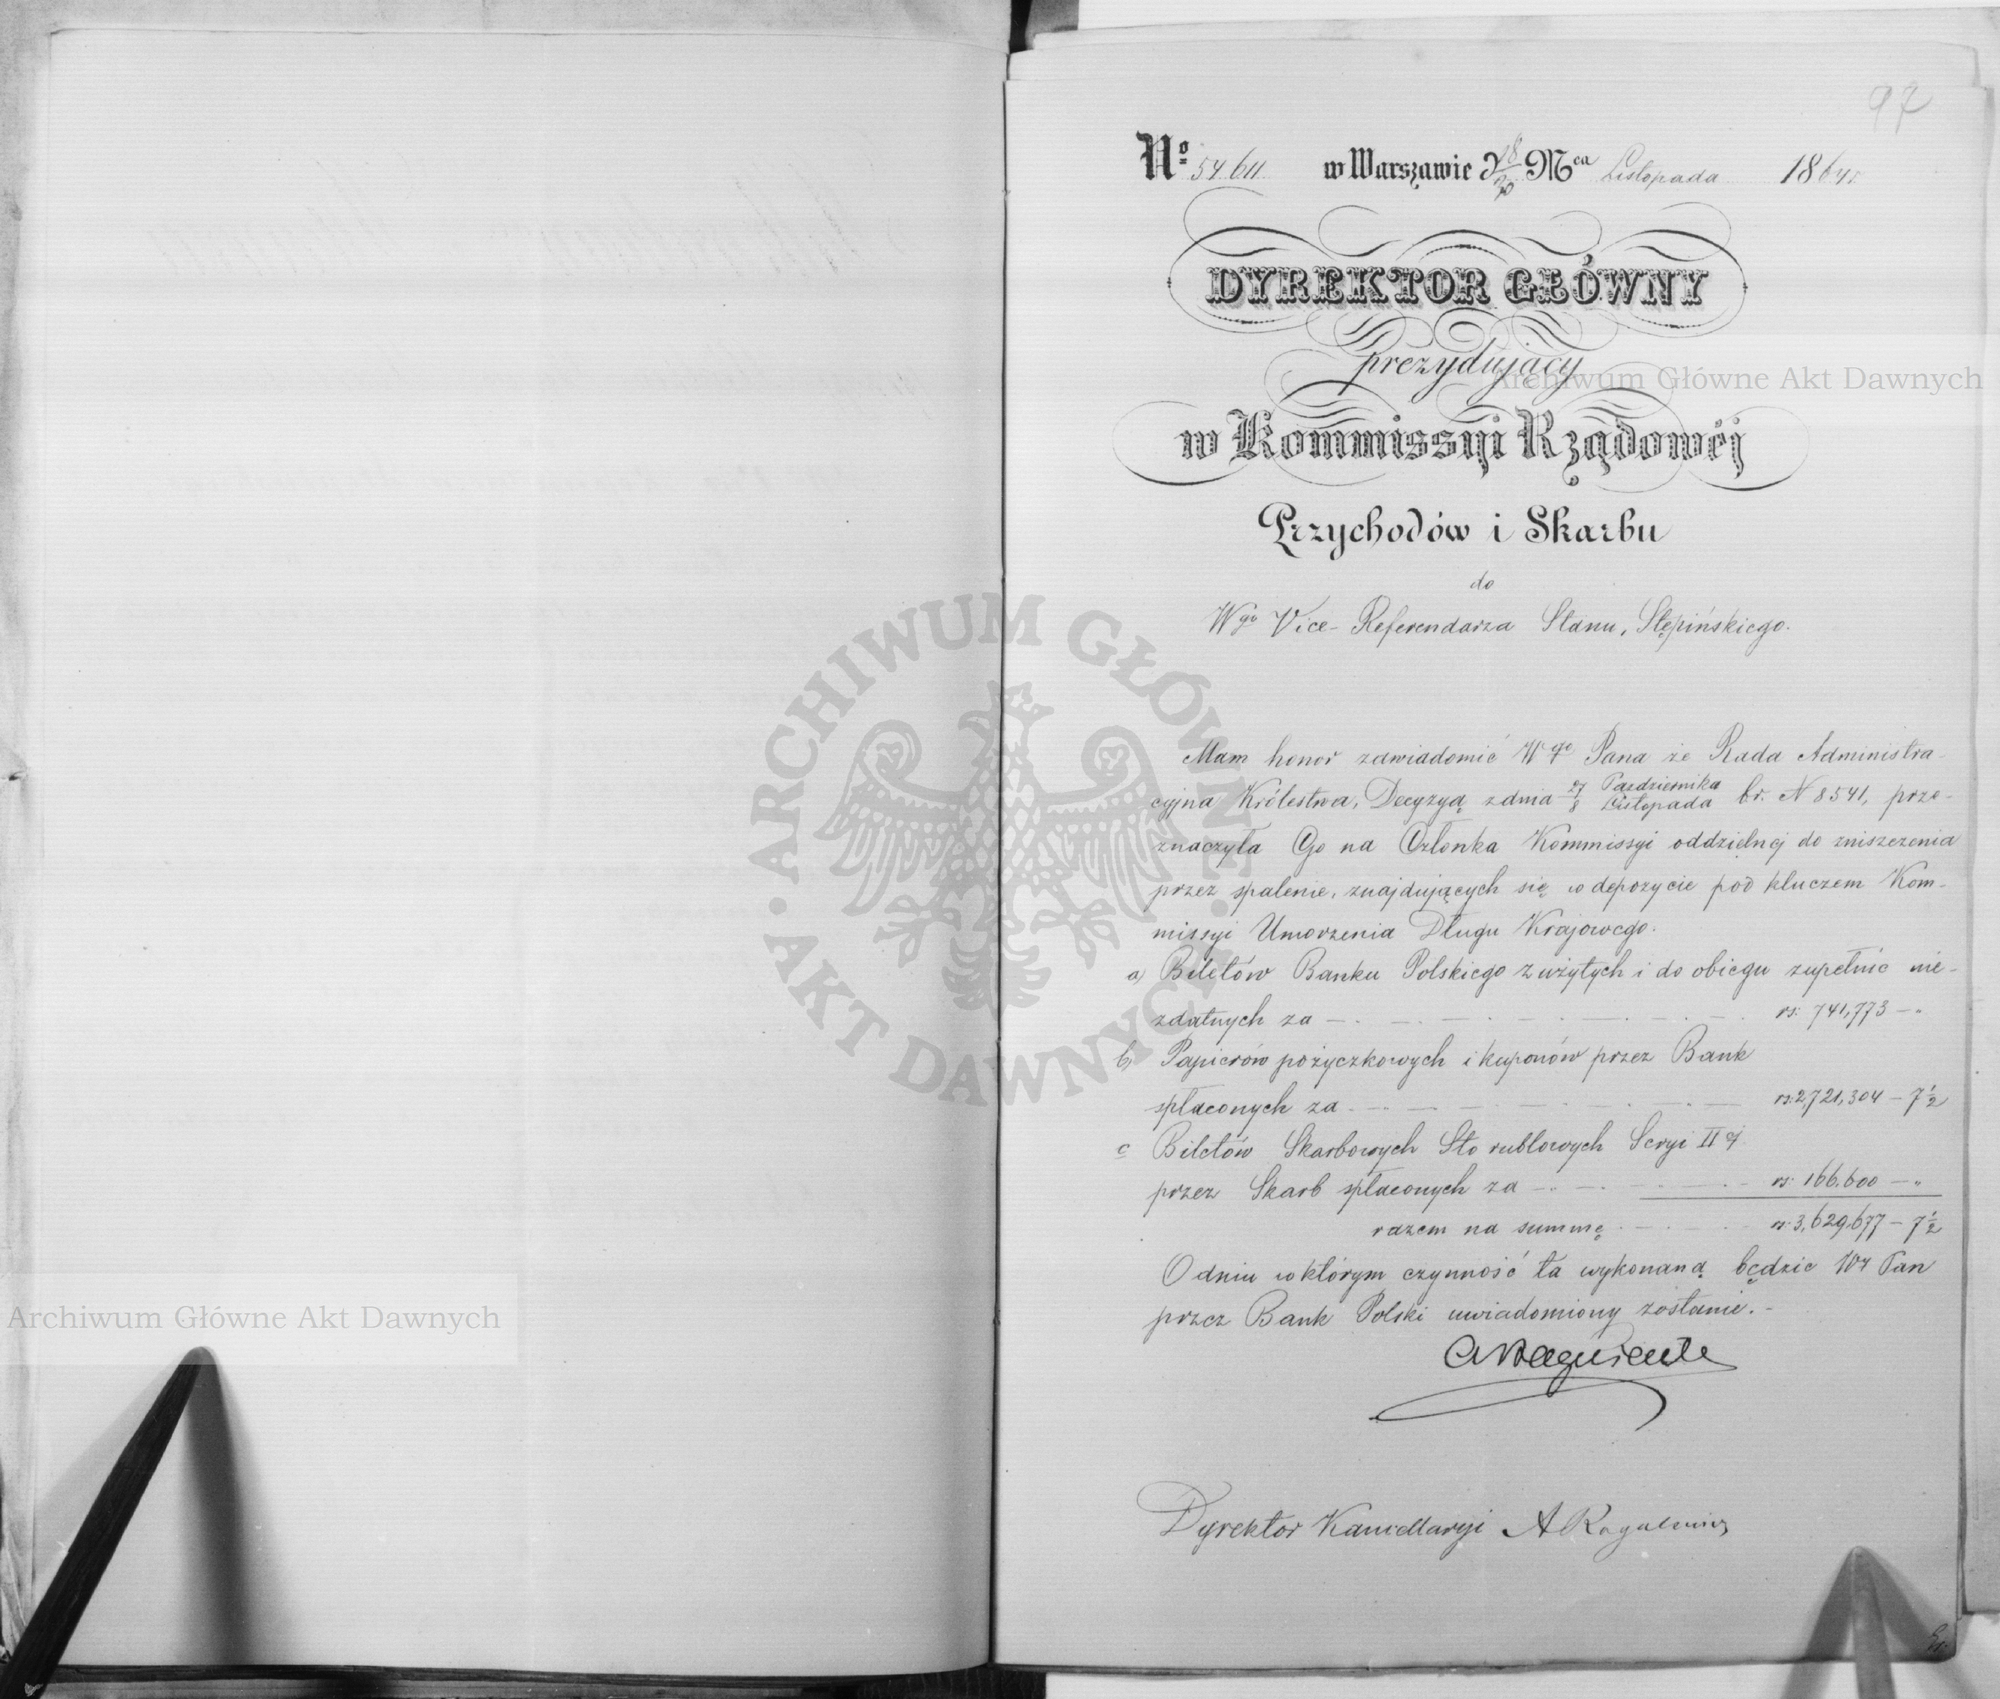 97
No 54.611. w Warszawie d 18/30 Mca Listopada 1864 r.
DYREKTOR GŁÓWNY
prezydujący
w Kommissyi Rządowéj
Przychodów i Skarbu
do
Wgo Vice-Referendarza Stanu, Stępińskiego.
Mam honor zawiadomić Wgo Pana że Rada Administra-
cyjna Królestwa, Decyzyą z dnia 27 Października / 8 Listopada b.r. N 8541, prze-
znaczyła Go na Członka Kommissyi oddzielnej do zniszczenia
przez spalenie, znajdujących się w depozycie pod kluczem Kom-
missyi Umorzenia Długu Krajowego.
a) Biletów Banku Polskiego zużytych i do obiegu zupełnie nie-
zdatnych za rs: 741,773 — "
b) Papierów pożyczkowych i kuponów przez Bank
spłaconych za rs: 2,721,304 — 7½
c Biletów Skarbowych Sto rublowych Seryi IIej
przez Skarb spłaconych za rs: 166.600 — "
razem na summę rs: 3,629,677 — 7½
O dniu w którym czynność ta wykonaną będzie Wy Pan
przez Bank Polski uwiadomiony zostanie. -
Dyrektor Kancellaryi A
Archiwum Główne Akt Dawnych
Archiwum Główne Akt Dawnych
· ARCHIWUM GŁÓWNE · AKT DAWNYCH